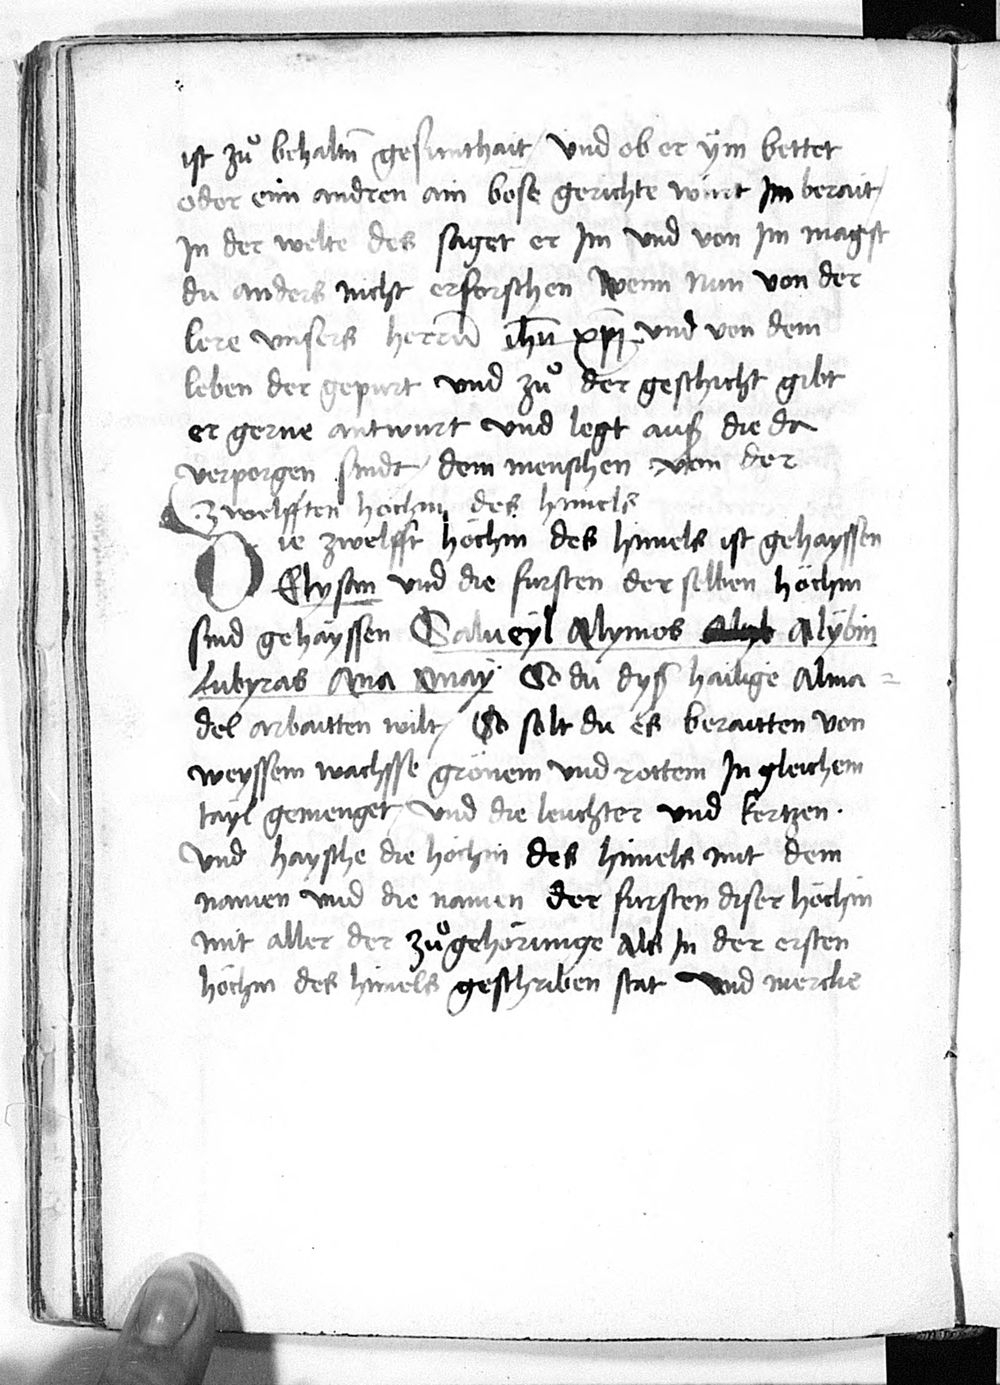 ist zuͦ behaltñ gesunthait / vnd ob er ÿm bettet
oder eim andren ain böse gerichte wirt Im berait /
In der welte des saget er Im vnd von Im magst
du anders nicht erforschen Wenn nun von der
lere vnsers herrn̄ ihū xp̄i vnd von dem
leben der gepurt vnd zuͦ der geschicht gibt
er gerne antwurt vnd legt auß die da
verporgen sindt / dem menschen von der
zwelfften höchin des himels
Die zwelfft höchin des himels ist gehayssen
Elysan vnd die fursten der selben höchin
sind gehäyssen Calueÿl Alymos Alÿbin
Lubyras Ana Onaÿ So du dyß hailige Alma=
del arbaitten wilt / So solt du es beraitten von
weyssem wachsse grönem vnd rottem In gleichem
tayl gemenget / vnd die leuchter vnd kertzen .
vnd haysche die höchin des himels mit dem
namen vnd die namen der fursten diser höchin
mit aller der zuͦgehörunge Als In der ersten
höchin des himels geschriben stat vnd mercke